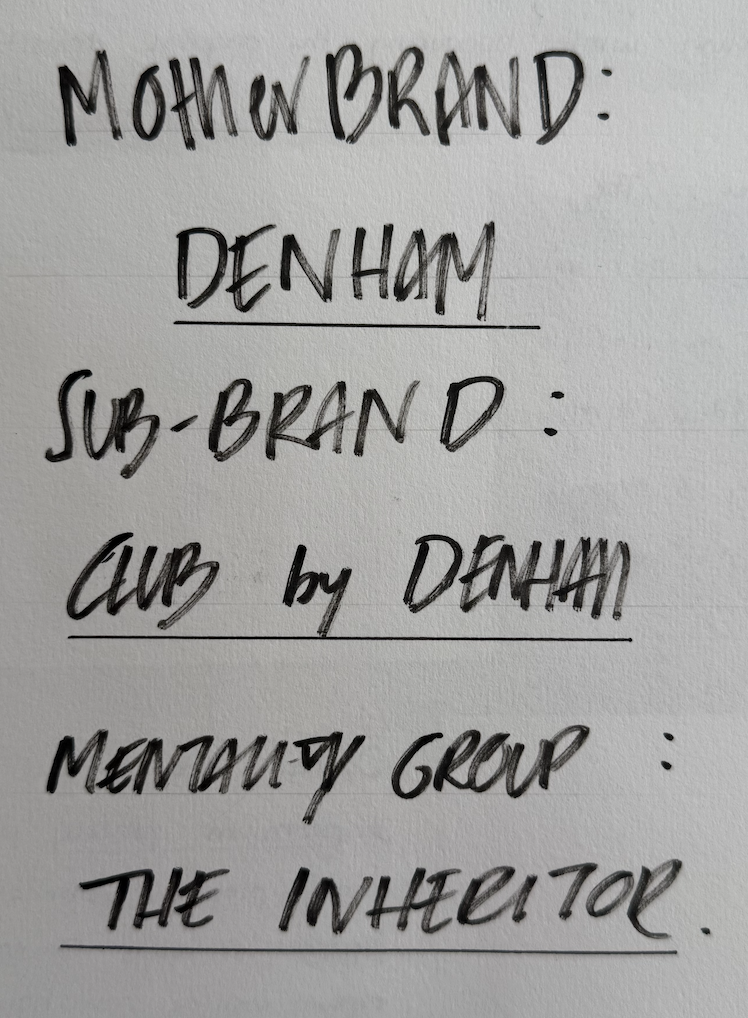 MOTHER BRAND:
DENHAM
SUB-BRAND :
CLUB by DENHAM
MENTALITY GROUP :
THE INHERITOR.